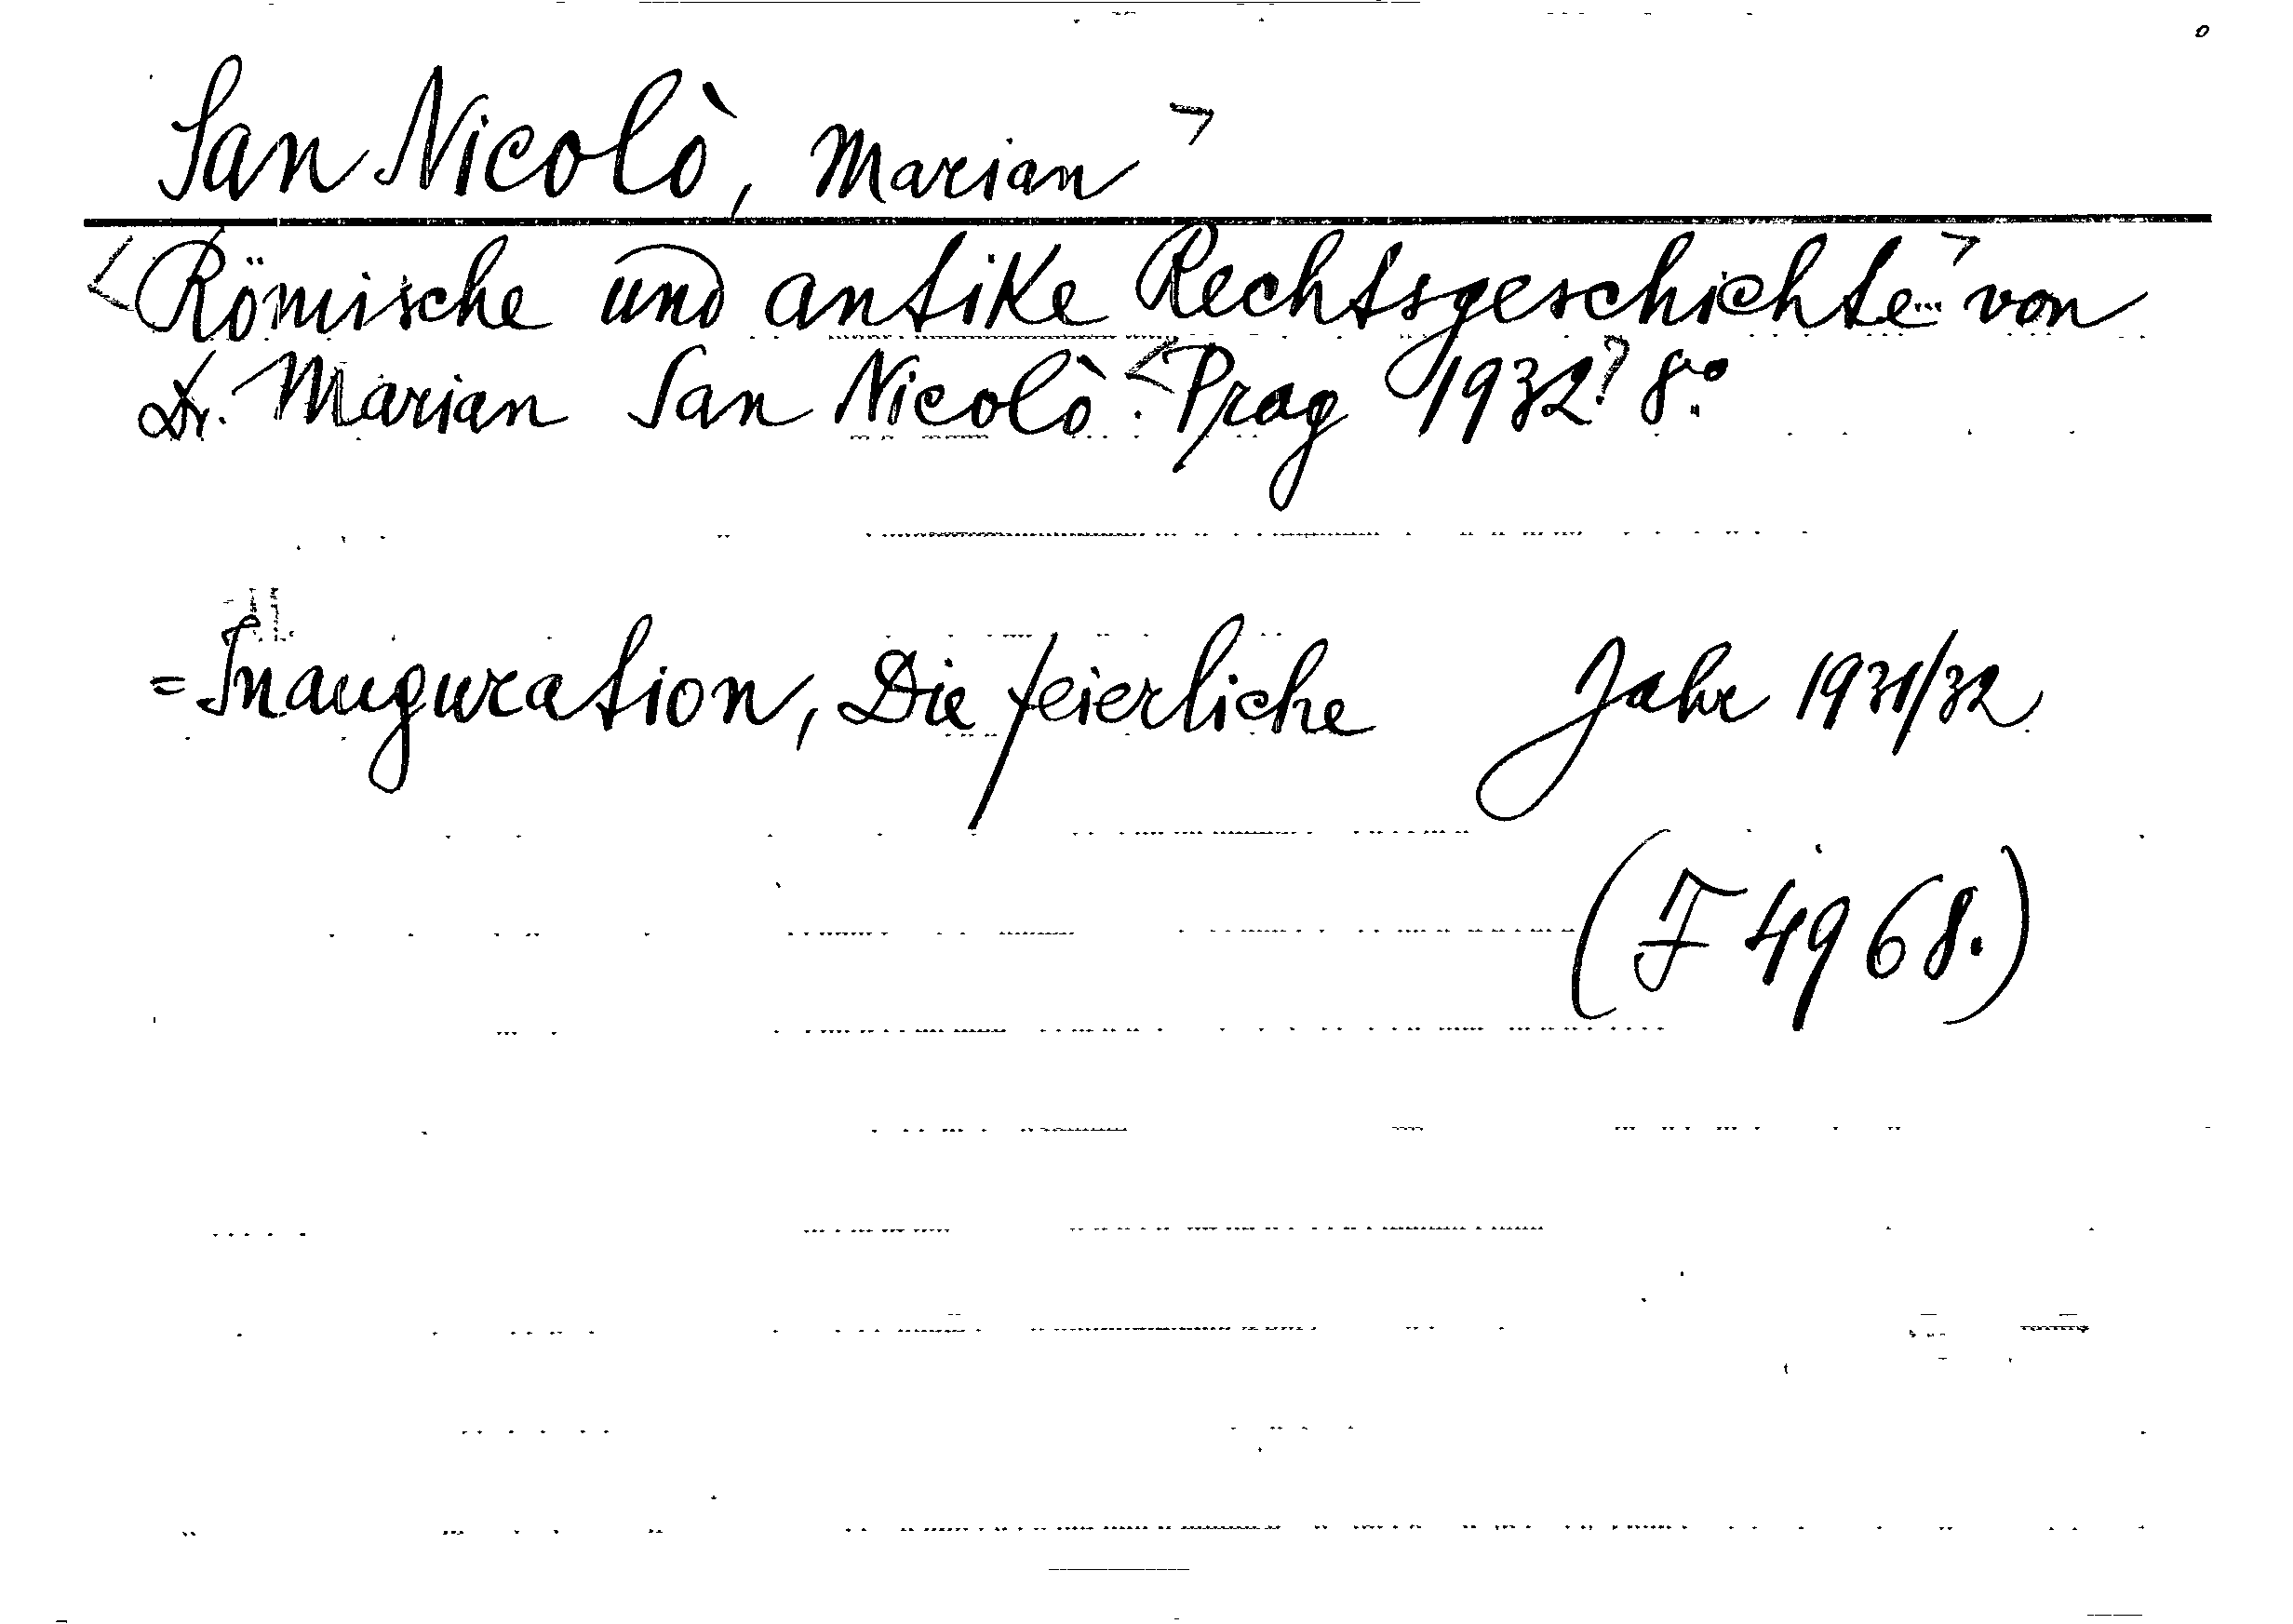 San Nicolò, Marian>
<Römische und antike Rechtsgeschichte...> von
Dr. Marian San Nicolò. <Prag 1932> 8°.
= Inauguration, Die feierliche Jahr 1931/32
(F 4968.)